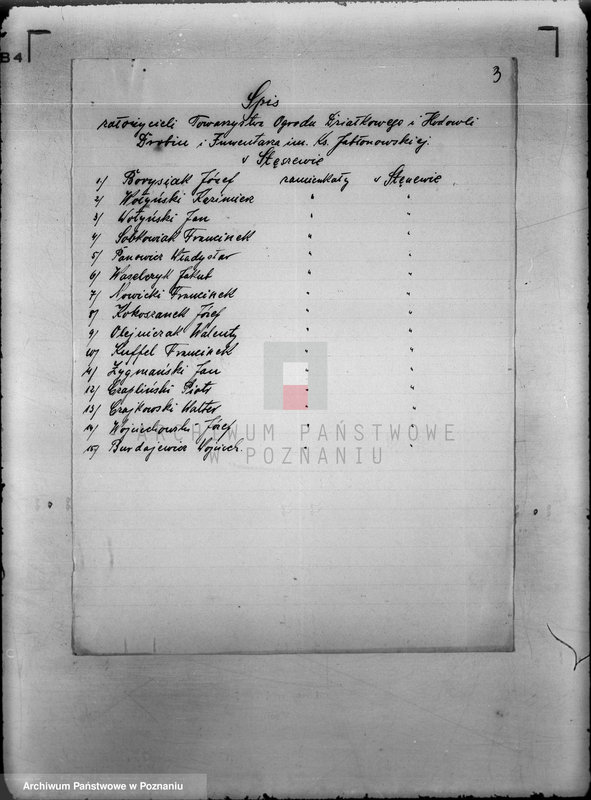 B4
3
Spis
założycieli Towarzystwa Ogrodu Działkowego i Hodowli
Drobiu i Inwentarza im. Ks. Jabłonowskiej
w Stęszewie
1/ Borysiak Józef zamieszkały w Stęszewie
2/ Wołyński Kazimierz " "
3/ Wołyński Jan " "
4/ Sobkowiak Franciszek " "
5/ Panowicz Władysław " "
6/ Waselczyk Jakub " "
7/ Nowicki Franciszek " "
8/ Kokoszanek Józef " "
9/ Olejniczak Walenty " "
10/ Kuffel Franciszek " "
11/ Zygmański Jan " "
12/ Czapliński Piotr " "
13/ Czajkowski Walter " "
14/ Wojciechowski Józef " "
15/ Burdajewicz Wojciech. " "
ARCHIWUM PAŃSTWOWE
W POZNANIU
Archiwum Państwowe w Poznaniu